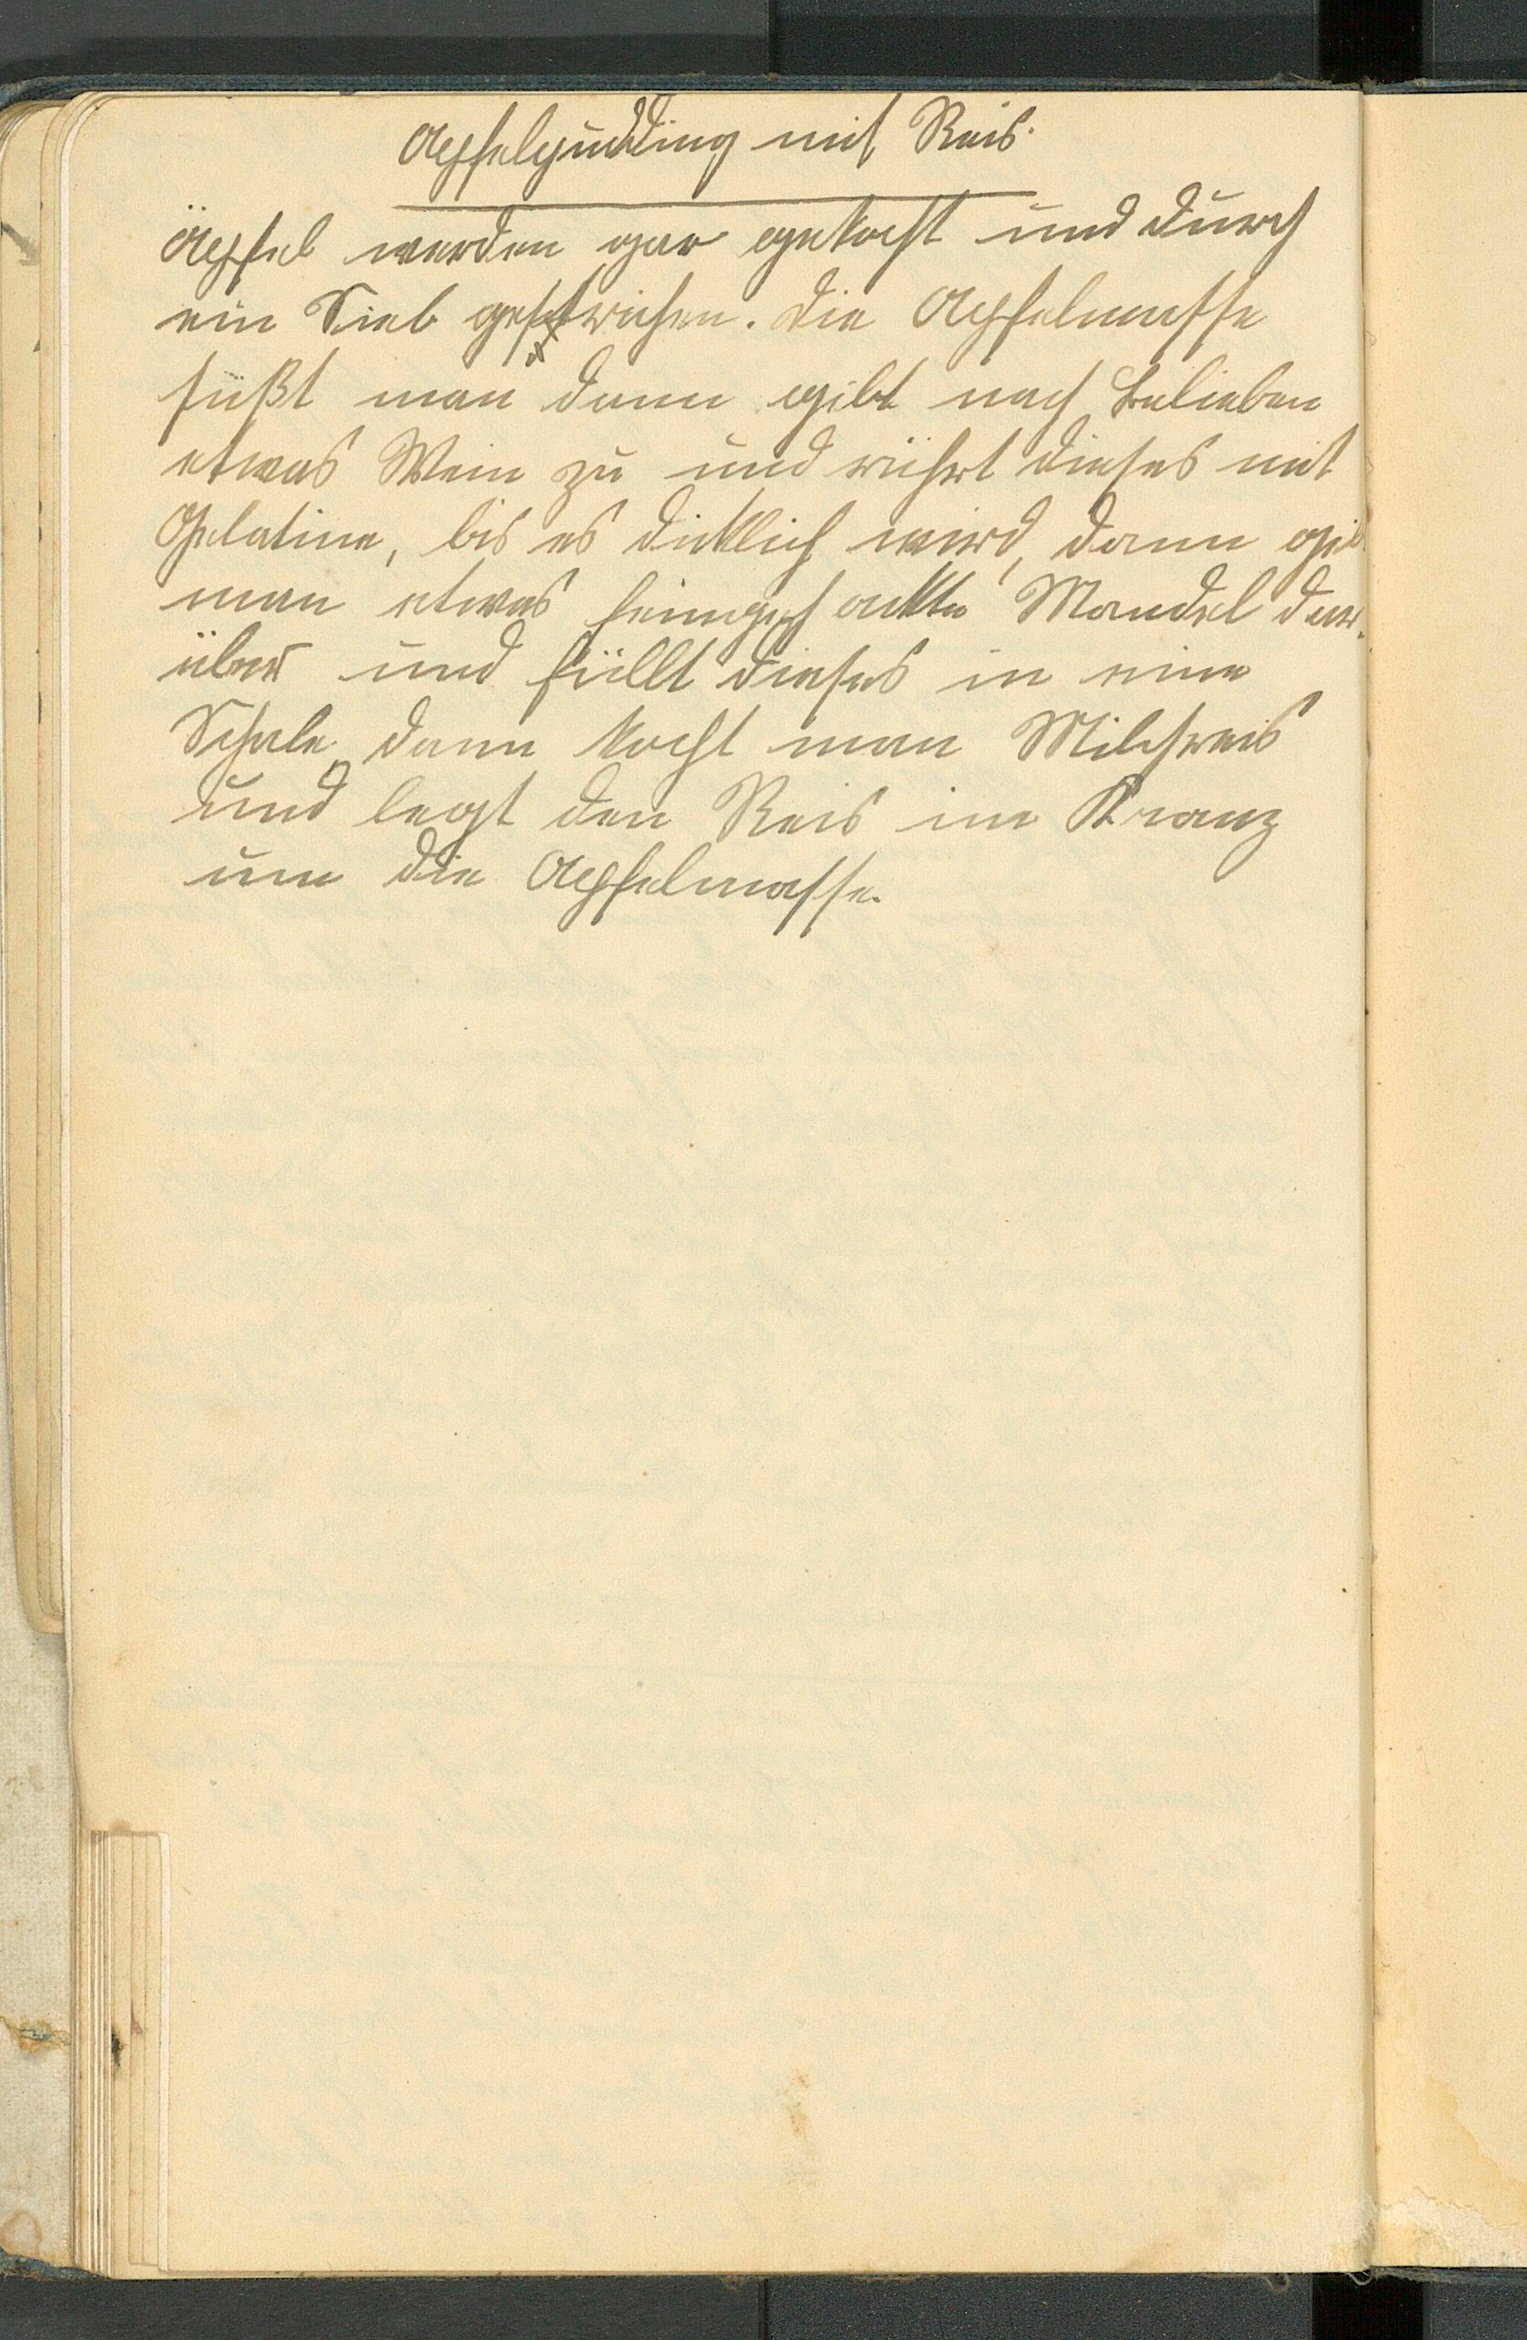 Apfelpudding mit Reis.
Äpfel werden gar gekocht und durch
ein Sieb gestrichen. Die Apfelmasse
süßt man dann gibt nach belieben
etwas Wein zu und rührt dieses mit
Gelatine, bis es dicklich wird, dann gibt
man etwas feingehackte Mandel dar-
über und füllt dieses in eine
Schale, dann kocht man Milchreis
und legt den Reis im Kranz
um die Apfelmasse.